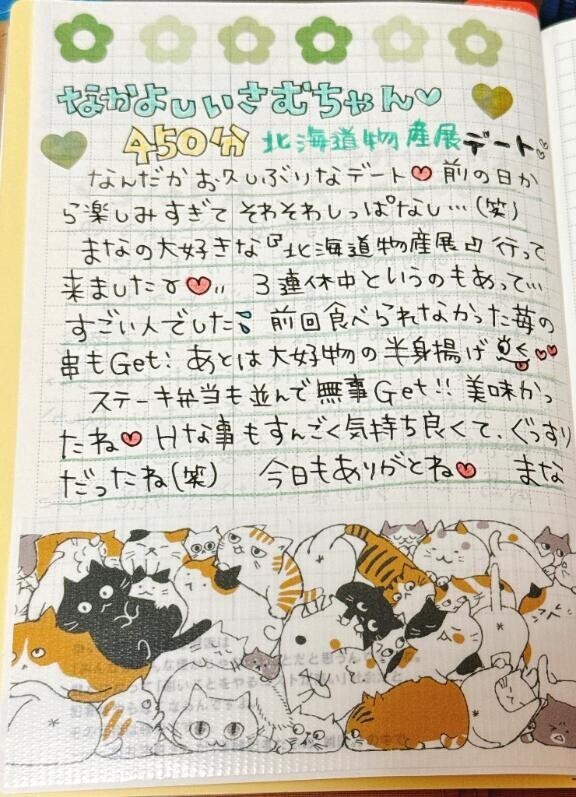 なかよしいさむちゃん♡
450分 北海道物産展デート
なんだかお久しぶりなデート♥ 前の日か
ら楽しみすぎてそわそわしっぱなし…(笑)
まなの大好きな『北海道物産展』行って
来ましたɤ♥〃 3連休中というのもあって…
すごい人でした 前回食べられなかった苺の
串もGet! あとは大好物の半身揚げ ♥♥
ステーキ弁当も並んで無事Get!! 美味かっ
たね♥ Hな事もすんごく気持ち良くて、ぐっすり
だったね(笑) 今日もありがとね♥ まな